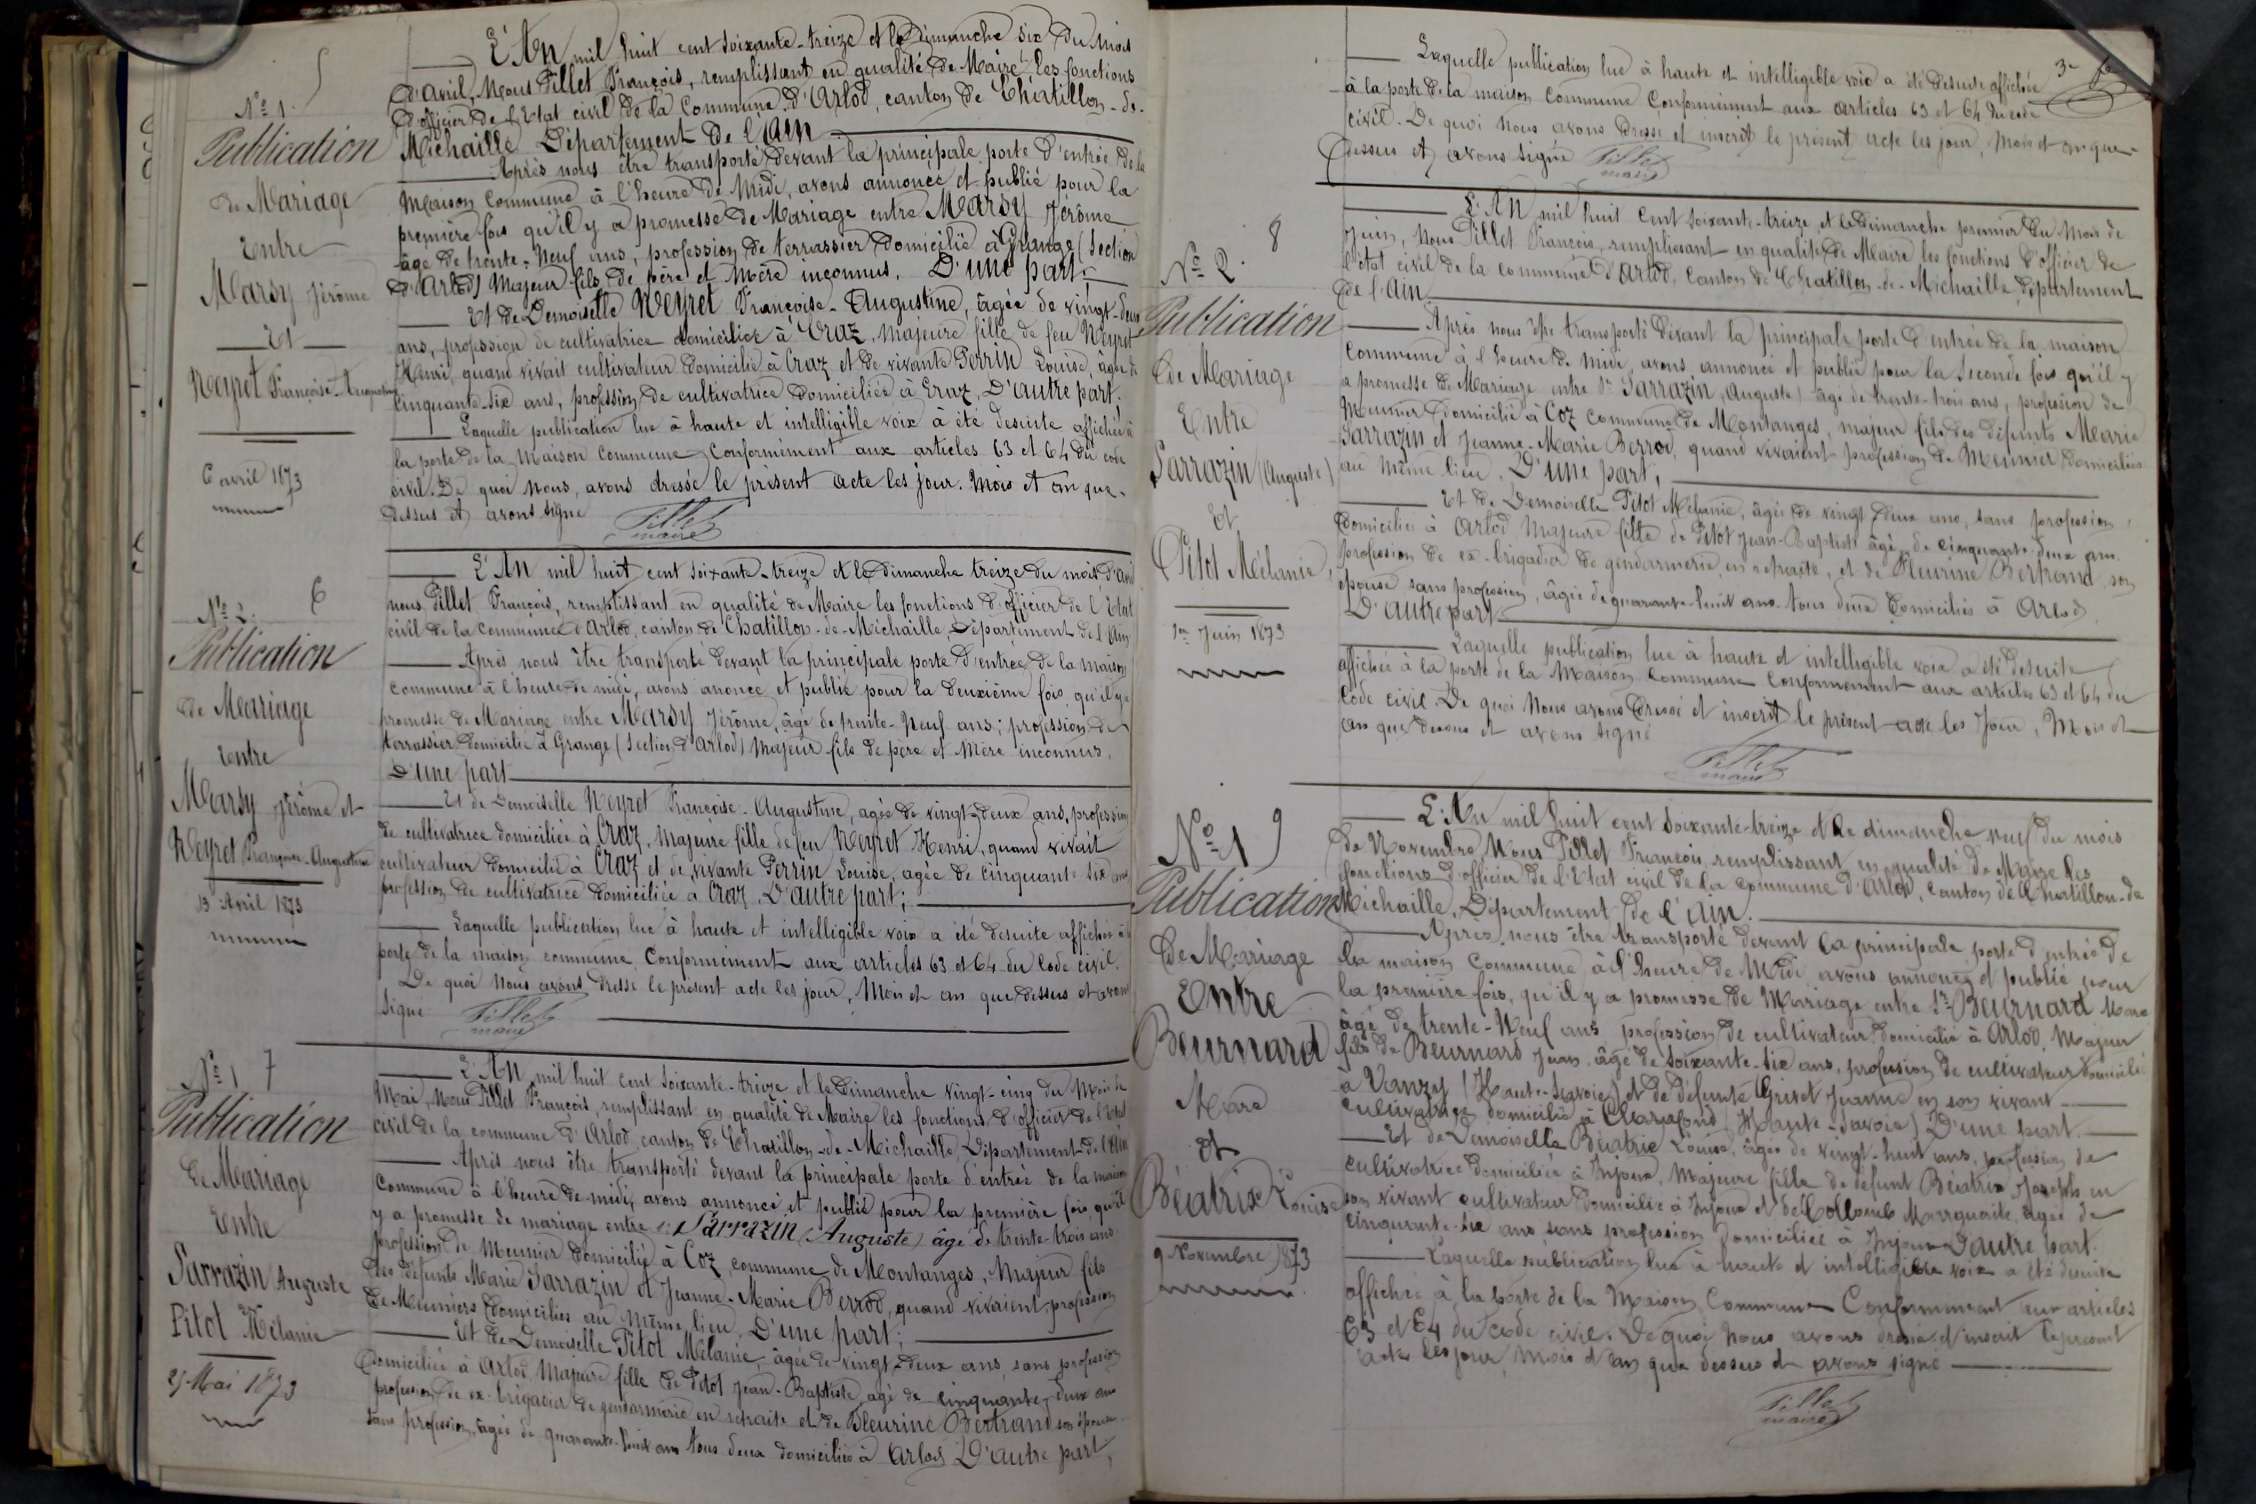 5
N° 1.
Publication
de Mariage
Entre
Marsy Jérôme
Et
Neyret Françoise-Augustine
6 avril 1873
L'An mil huit cent soixante-treize et le Dimanche six du mois
d'avril, Nous Pillet François, remplissant en qualité de Maire les fonctions
d'officier de l'Etat civil de la Commune d'Arlod, canton de Châtillon-de-
Michaille Département de l'Ain
Après nous être transporté devant la principale porte d'entrée de la
Maison Commune à l'heure de Midi, avons annoncé et publié pour la
première fois qu'il y a promesse de Mariage entre Marsy Jérôme
âgé de trente-Neuf ans, profession de terrassier domicilié à Grange (Section
d'Arlod) Majeur fils de père et Mère inconnus. D'une part.
Et de Demoiselle Neyret Françoise-Augustine, âgée de vingt-deux
ans, profession de cultivatrice domiciliée à Craz, majeure fille de feu Neyret
Henri, quand vivait cultivateur domicilié à Craz et de vivante Perrin Louise, âgée de
cinquante-six ans, profession de cultivatrice domiciliée à Craz, D'autre part.
Laquelle publication lue à haute et intelligible voix à été desuite affichée à
la porte de la Maison Commune Conformément aux articles 63 et 64 du code
civil. De quoi Nous, avons dressé le présent acte les jour. Mois et an que-
dessus et avons signé
Pillet
maire
N° 2. 6
Publication
de Mariage
Entre
Marsy Jérôme et
Neyret Françoise-Augustine
13 Avril 1873
L'An mil huit cent soixante-treize et le Dimanche treize du mois d'Avril
nous Pillet François, remplissant en qualité de Maire les fonctions d'officier de l'Etat
civil de la Commune d'Arlod, canton de Chatillon-de-Michaille, Département de l'Ain
Après nous être transporté devant la principale porte d'entrée de la maison
commune à l'heure de midi, avons anoncé et publié pour la deuxième fois qu'il y a
promesse de Mariage entre Marsy Jérôme, âgé de trente-Neuf ans; profession de
terrassier domicilié à Grange (Section d'Arlod) Majeur fils de père et Mère inconnus.
D'une part
Et de Demoiselle Neyret Françoise-Augustine, agée de vingt-deux ans, profession
de cultivatrice domiciliée à Craz, Majeure fille de feu Neyret Henri, quand vivait
cultivateur domicilié à Craz et de vivante Perrin Louise, agée de cinquante six ans
profession de cultivatrice domiciliée à Craz, D'autre part;
Laquelle publication lue à haute et intelligible voix a été desuite affichée à la
porte de la maison commune, Conformément aux articles 63 et 64 du Code civil.
De quoi Nous avons dressé le présent acte les jour, Mois et an que dessus et avons
signé
Pillet
maire
N° 1 7
Publication
de Mariage
Entre
Sarrazin Auguste
Pitot Mélanie
25 Mai 1873
L'An mil huit cent soixante-treize et le Dimanche vingt-cinq du Mois de
Mai, Nous Pillet François, remplissant en qualité de Maire les fonctions d'officier de l'Etat
civil de la commune d'Arlod, canton de Chatillon-de-Michaille, Département de l'Ain
Après nous être transporté devant la principale porte d'entrée de la maison
Commune à l'heure de midi, avons annoncé et publié pour la première fois qu'il
y a promesse de mariage entre Sarrazin (Auguste) âgé de trente-trois ans
profession de Meunier domicilié à Coz, commune de Montanges, Majeur fils
des défunts Marie Sarrazin et Jeanne-Marie Berrod, quand vivaient profession
de Meuniers domiciliés au même lieu. D'une part;
Et de Demoiselle Pitot Mélanie, âgée de vingt-deux ans, sans profession
domiciliée à Arlod, Majeure fille de Pitot Jean-Baptiste, agé de cinquante-deux ans
profession de ex-brigadier de gendarmerie en retraite et de Fleurine Bertrand son épouse
sans profession, âgée de quarante-huit ans tous deux domiciliés à Arlod D'autre part,
3
Laquelle publication lue à haute et intelligible voix a été desuite affichée
à la porte de la maison Commune Conformément aux articles 63 et 64 du code
civil. De quoi nous avons dressé et inscrit le présent acte les jour, Mois et an que-
dessus et avons signé
Pillet
maire
N° 2. 8
Publication
de Mariage
Entre
Sarrazin (Auguste)
Et
Pitot Mélanie
1er Juin 1873
L'An mil huit cent soixante-treize, et le Dimanche premier du Mois de
Juin, Nous Pillet François, remplissant en qualité de Maire les fonctions d'officier de
l'état civil de la commune d'Arlod, Canton de Chatillon-de-Michaille, Département
de l'Ain
Après nous être transporté devant la principale porte d'entrée de la maison
Commune à l'heure de Midi, avons annoncé et publié pour la Seconde fois qu'il y
a promesse de Mariage entre Sr Sarrazin (Auguste) âgé de trente-trois ans, profession de
Meunier domicilié à Coz commune de Montanges, majeur fils des défunts Marie
Sarrazin et Jeanne-Marie Berrod, quand vivaient profession de Meunier domiciliés
au Même lieu. D'une part,
Et de Demoiselle Pitot Mélanie, âgée de vingt deux ans, sans profession,
domiciliée à Arlod Majeure fille de Pitot Jean-Baptiste âgé de cinquante-deux ans
profession de ex-brigadier de gendarmerie en retraite, et de Fleurine Bertrand son
épouse sans profession, âgée de quarante-huit ans tous deux domiciliés à Arlod
D'autre part
Laquelle publication lue à haute et intelligible voix a été desuite
affichée à la porte de la Maison Commune Conformément aux articles 63 et 64 du
Code civil. De quoi Nous avons dressé et inscrit le présent acte les Jour, Mois et
an que dessus et avons signé
Pillet
maire
N° 1 9
Publication
De Mariage
Entre
Beurnard
Marc
et
Béatrix Louise
9 Novembre 1873
L'An mil huit cent soixante-treize et le dimanche neuf du mois
de Novembre Nous Pillet François, remplissant en qualité de Maire les
fonctions d'officier de l'Etat civil de la Commune d'Arlod, Canton de Chatillon-de
Michaille, Département de l'Ain.
Après nous être transporté devant la principale porte d'entrée de
la maison Commune à l'heure de Midi avons annoncé et publié pour
la première fois, qu'il y a promesse de Mariage entre Sr Beurnard Marc
âgé de trente-Neuf ans profession de cultivateur domicilié à Arlod, Majeur
fils de Beurnard Jean âgé de soixante-six ans, profession de cultivateur domicilié
à Vanzy (Haute-Savoie) et de défunte Grivet Jeanne en son vivant
cultivatrice domicilié à Clarafond (Haute-Savoie) D'une part.
Et de Demoiselle Béatrix Louise, âgée de vingt-huit ans, profession de
cultivatrice domiciliée à Injoux, Majeure fille de défunt Béatrix Joseph, en
son vivant cultivateur domicilié à Injoux et de Collomb Marguerite, agée de
cinquante-six ans sans profession domiciliée à Injoux D'autre part.
Laquelle publication lue à haute et intelligible voix a été desuite
affichée à la porte de la Maison Commune Conformément aux articles
63 et 64 du Code civil. De quoi Nous avons dressé et inscrit le présent
acte les jour, Mois et an que dessus et avons signé
Pillet
maire